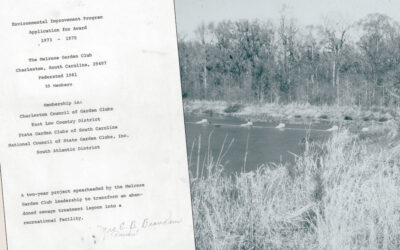 Environmental Improvement Program
Application for Award
1973 - 1975
The Melrose Garden Club
Charleston, South Carolina, 29407
Federated 1961
35 Members
Membership in:
Charleston Council of Garden Clubs
East Low Country District
State Garden Clubs of South Carolina
National Council of State Garden Clubs, Inc.
South Atlantic District
A two-year project spearheaded by the Melrose
Garden Club leadership to transform an aban-
doned sewage treatment lagoon into a
recreational facility.
Mrs. C. B.